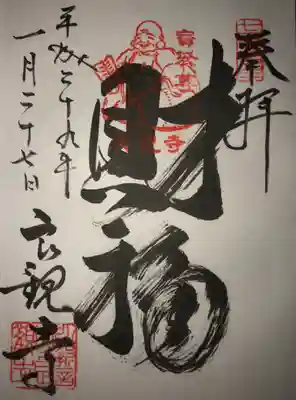 奉拝
寳袋尊
財福
平成二十九年
一月二十七日
良観寺